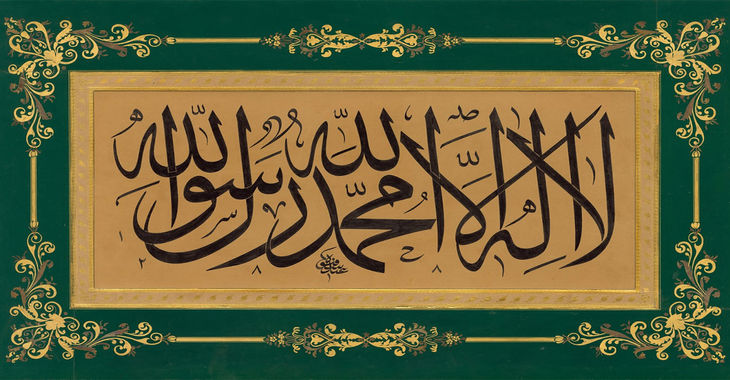 لا اله الا الله محمد رسول الله
١٢٨٨